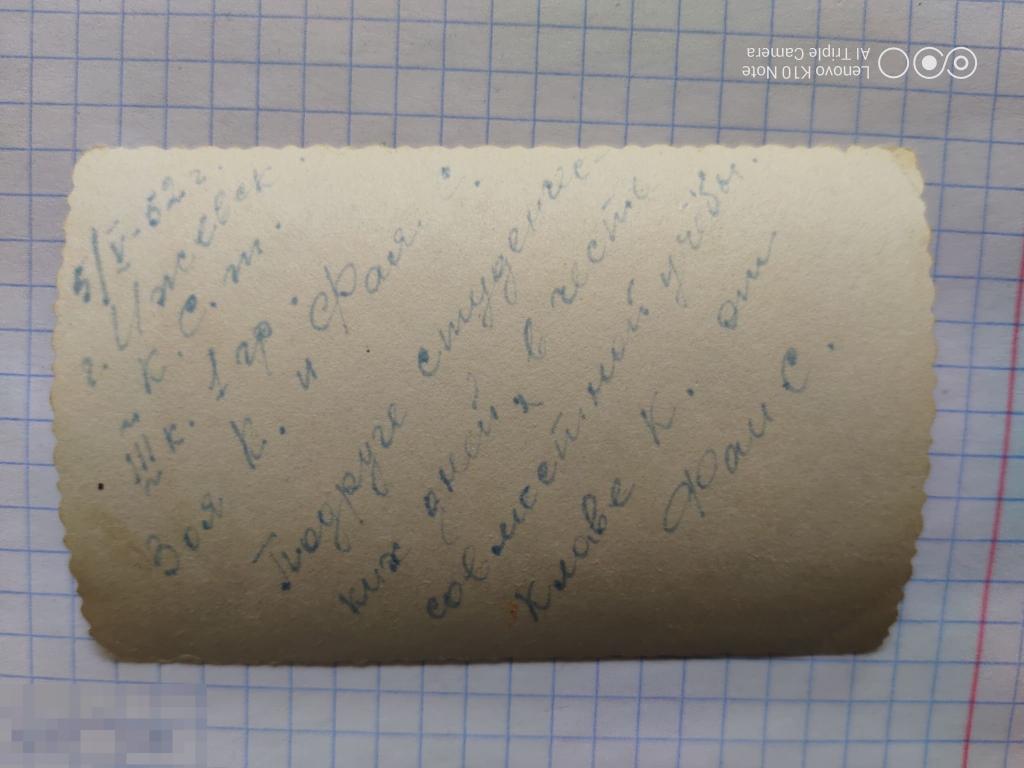 5/V-52 г.
г. Ижевск.
К. С. т.
III к. 1 гр.
Зоя К. и Фая. С.
Подруге студенче-
ких дней, в честь
совместной учёбы.
Клаве К. от
Фаи С.
Lenovo K10 Note
AI Triple Camera